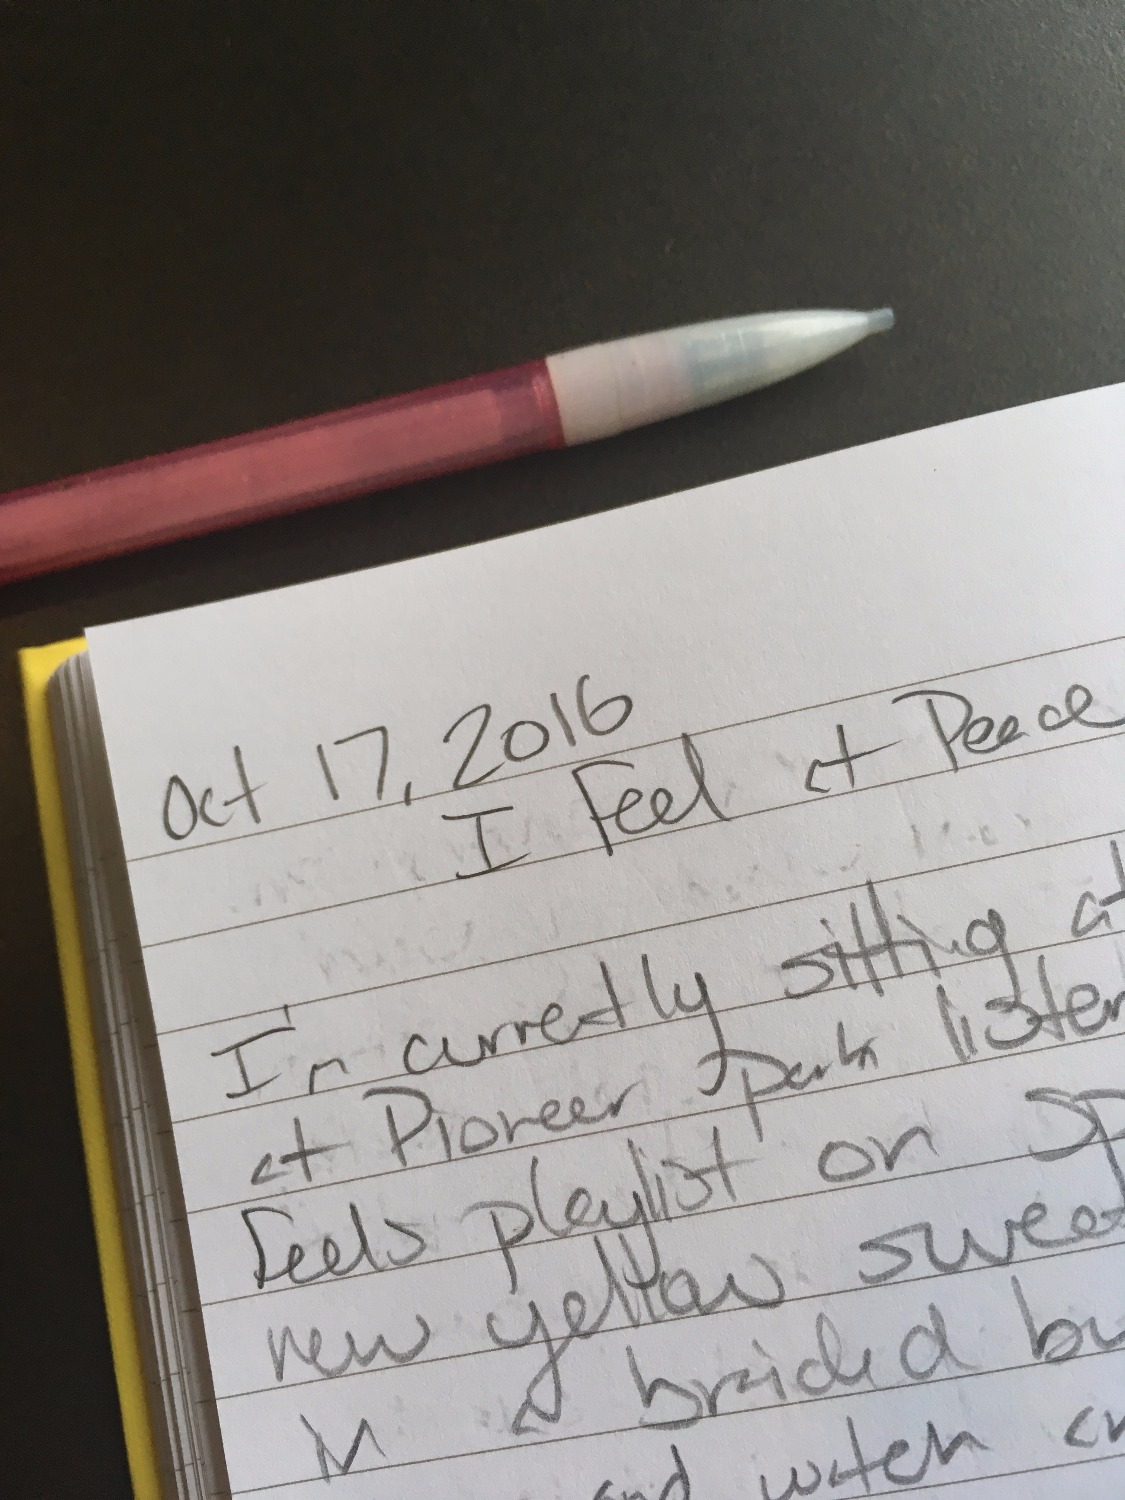 Oct 17, 2016
I Feel at Peace
I'm currently sitting at
at Pioneer Park listen
Feels playlist on Sp
new yellow sweat
in a braided bu
and watch an